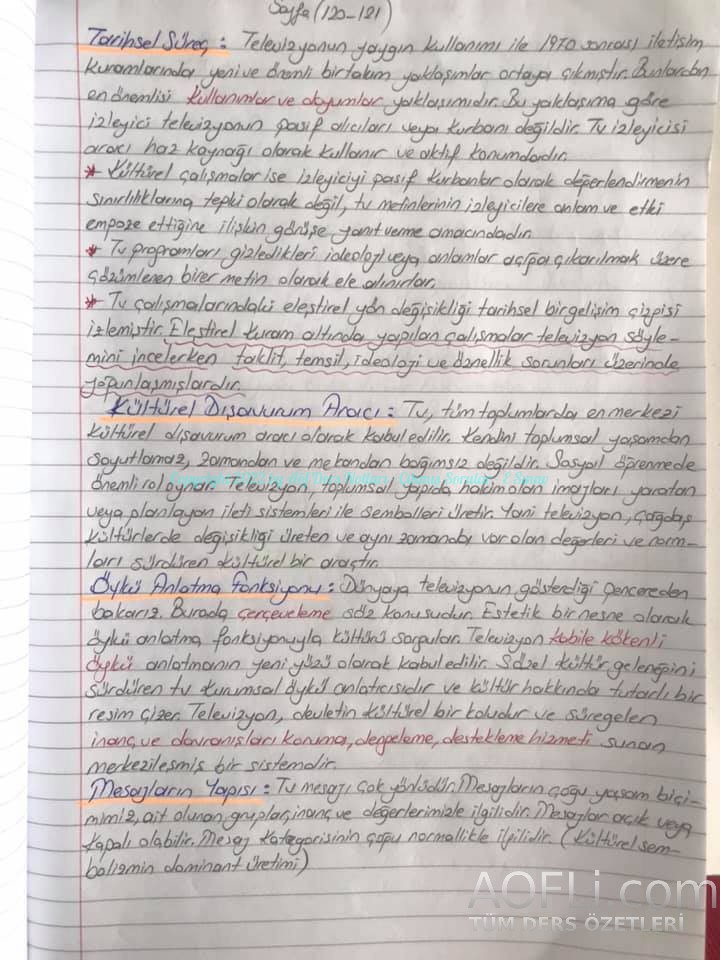 Sayfa (120-121)
Tarihsel Süreç: Televizyonun yaygın kullanımı ile 1970 sonrası iletişim
kuramlarında yeni ve önemli bir takım yaklaşımlar ortaya çıkmıştır. Bunlardan
en önemlisi kullanımlar ve doyumlar yaklaşımıdır. Bu yaklaşıma göre
izleyici televizyonun pasif alıcıları veya kurbanı değildir. Tv izleyicisi
aracı haz kaynağı olarak kullanır ve aktif konumdadır.
* Kültürel çalışmalar ise izleyiciyi pasif kurbanlar olarak değerlendirmenin
sınırlılıklarına tepki olarak değil, tv metinlerinin izleyicilere anlam ve etki
empoze ettiğine ilişkin görüşe yanıt verme amacındadır.
* Tv programları gizledikleri ideoloji veya anlamlar açığa çıkarılmak üzere
çözümlenen birer metin olarak ele alınırlar.
* Tv çalışmalarındaki eleştirel yön değişikliği tarihsel bir gelişim çizgisi
izlemiştir. Eleştirel kuram altında yapılan çalışmalar televizyon söyle-
mini incelerken taklit, temsil, ideoloji ve öznellik sorunları üzerinde
yoğunlaşmışlardır.
Kültürel Dışavurum Aracı: Tv, tüm toplumlarda en merkezi
kültürel dışavurum aracı olarak kabul edilir. Kendini toplumsal yaşamdan
soyutlamaz, zamandan ve mekandan bağımsız değildir. Sosyal öğrenmede
önemli rol oynar. Televizyon, toplumsal yapıda hakim olan imajları yaratan
veya planlayan ileti sistemleri ile sembolleri üretir. Yani televizyon, çağdaş
kültürlerde değişikliği üreten ve aynı zamanda var olan değerleri ve norm-
ları sürdüren kültürel bir araçtır.
Öykü Anlatma Fonksiyonu: Dünyaya televizyonun gösterdiği pencereden
bakarız. Burada çerçeveleme söz konusudur. Estetik bir nesne olarak
öykü anlatma fonksiyonuyla kültürü sorgular. Televizyon kabile kökenli
öykü anlatmanın yeni yüzü olarak kabul edilir. Sözel kültür geleneğini
sürdüren tv kurumsal öykü anlatıcısıdır ve kültür hakkında tutarlı bir
resim çizer. Televizyon, devletin kültürel bir koludur ve süregelen
inanç ve davranışları koruma, dengeleme, destekleme hizmeti sunan
merkezileşmiş bir sistemdir.
Mesajların Yapısı: Tv mesajı çok yönlüdür. Mesajların çoğu yaşam biçi-
mimiz, ait olunan gruplar, inanç ve değerlerimizle ilgilidir. Mesajlar açık veya
kapalı olabilir. Mesaj kategorisinin çoğu normallikle ilgilidir. (Kültürel sem-
bolizmin dominant üretimi)
AOFLi.com
TÜM DERS ÖZETLERİ